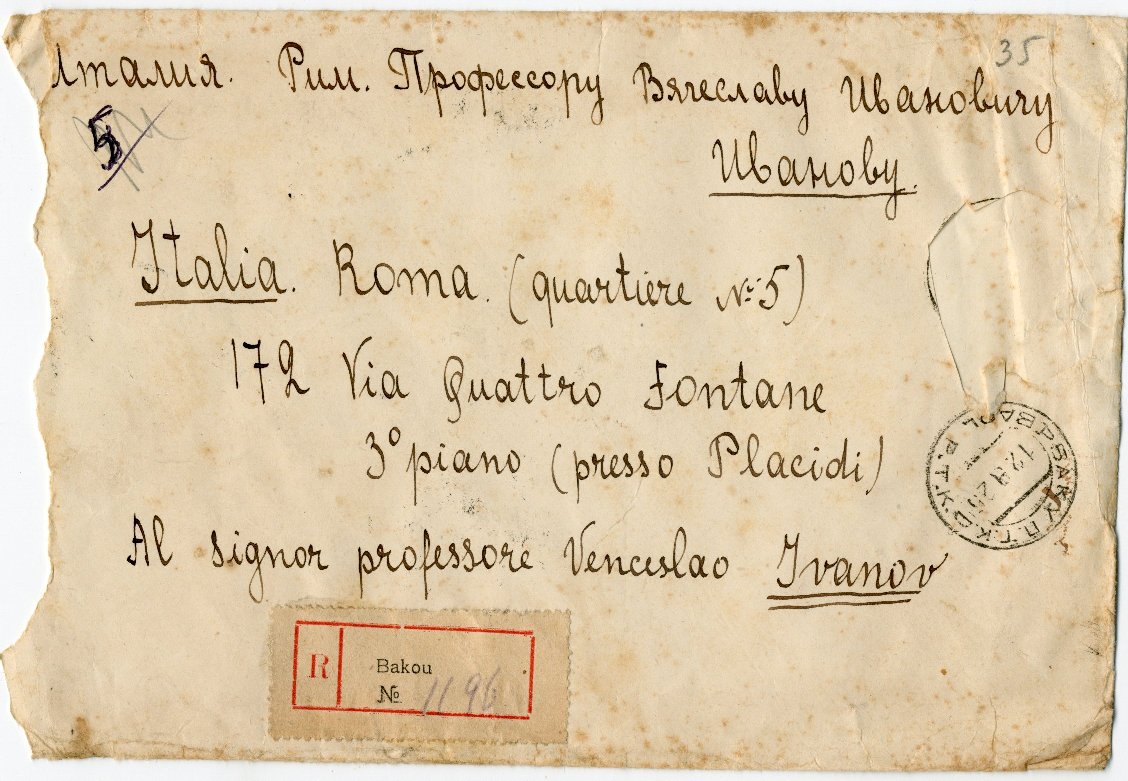 35
Италия. Рим. Профессору Вячеславу Ивановичу
Иванову.
5
Italia. Roma. (quartiere № 5)
172 Via Quattro Fontane
3° piano (presso Placidi)
Al signor professore Venceslao Ivanov
R
Bakou
№ 1196